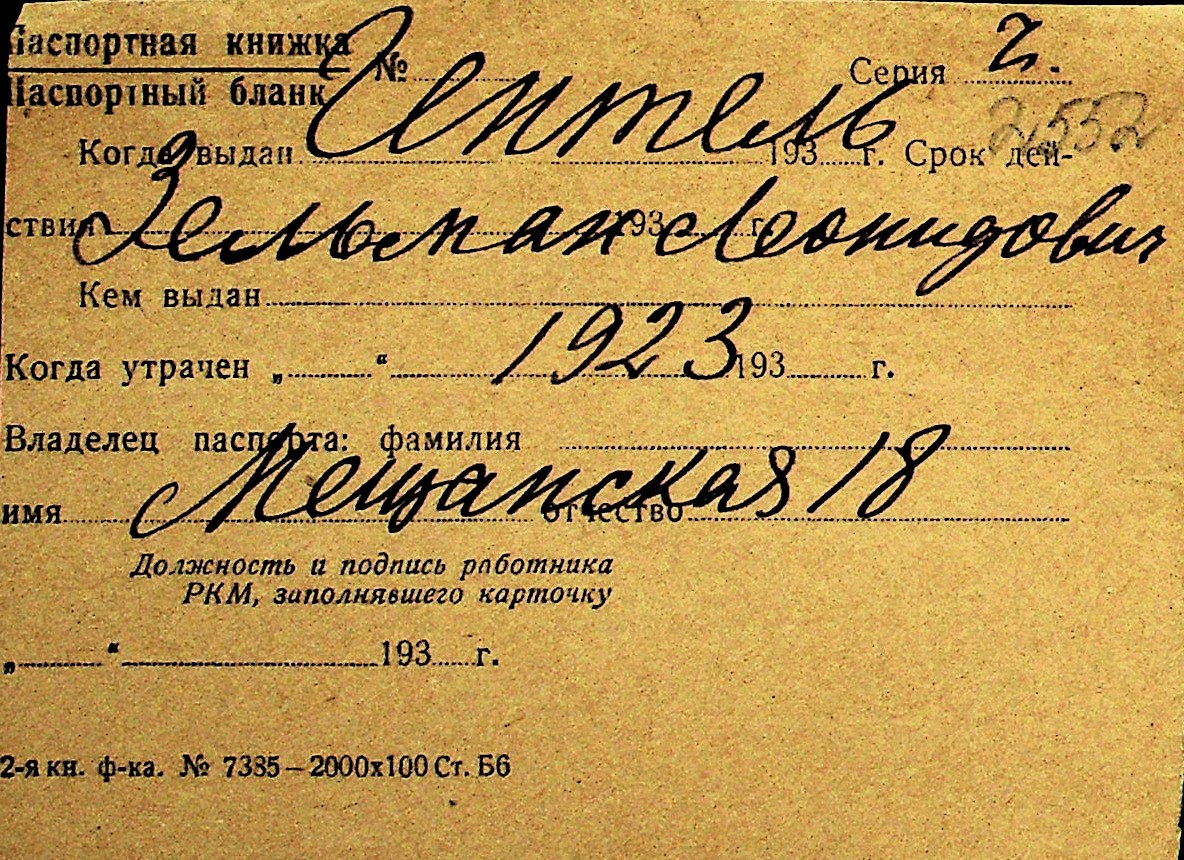 Паспортная книжка
Паспортный бланк
№ Серия 2.
Гентель
21552
Когда выдан 193 г. Срок дей-
ствия 193 г.
Зельман Леонидович
Кем выдан
1923
Когда утрачен „ “ 193 г.
Владелец паспорта: фамилия
Мещанская 18
имя отчество
Должность и подпись работника
РКМ, заполнявшего карточку
„ “ 193 г.
2-я кн. ф-ка. № 7385–2000х100 Ст. Б6